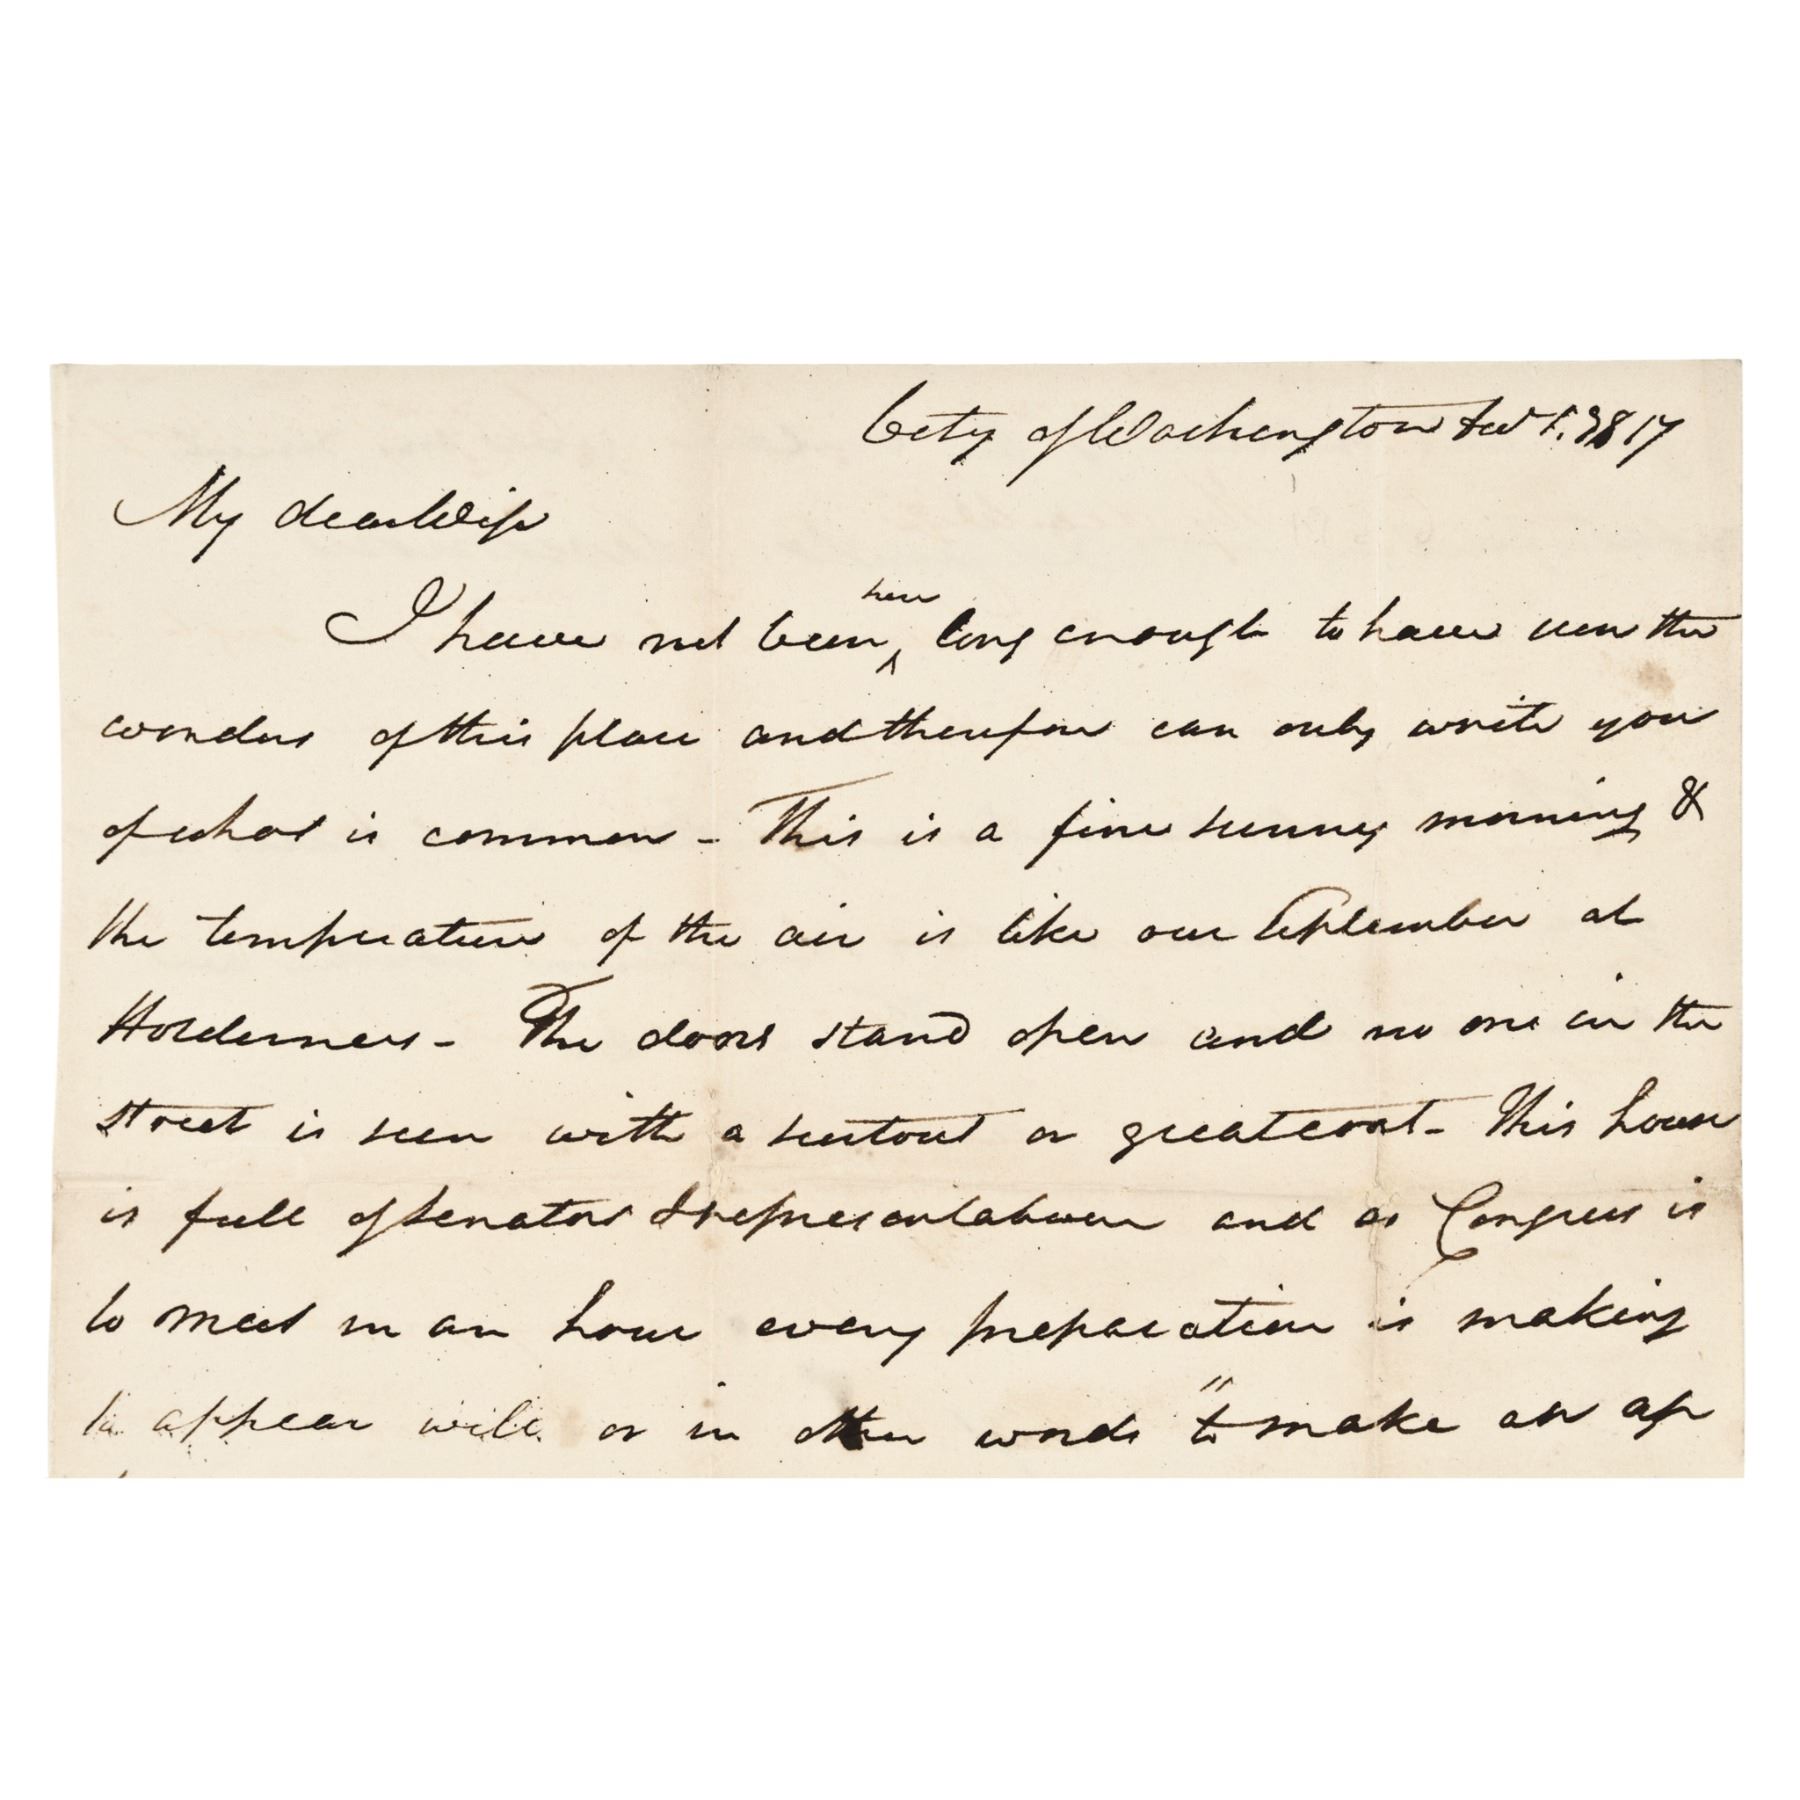 City of Washington 1817
My dear Wife
I have not been here long enough to have seen the
wonders of this place and therefore can only write you
of what is common - This is a fine sunny morning &
the temperature of the air is like our September at
Holderness - The doors stand open and no one in the
street is seen with a surtout or greatcoat - This house
is full of senators & representatives and as Congress is
to meet in an hour every preparation is making
to appear well or in other words "to make an ap